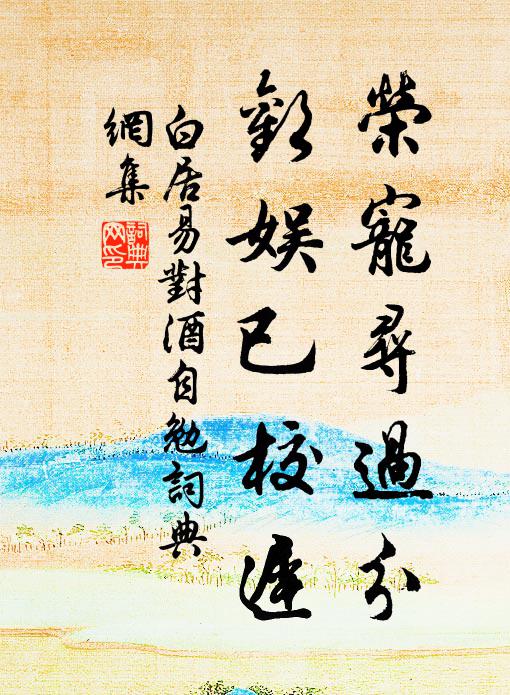 榮寵尋過分
歡娛已校遲
白居易對酒自勉詞典
網集
詞典
网印